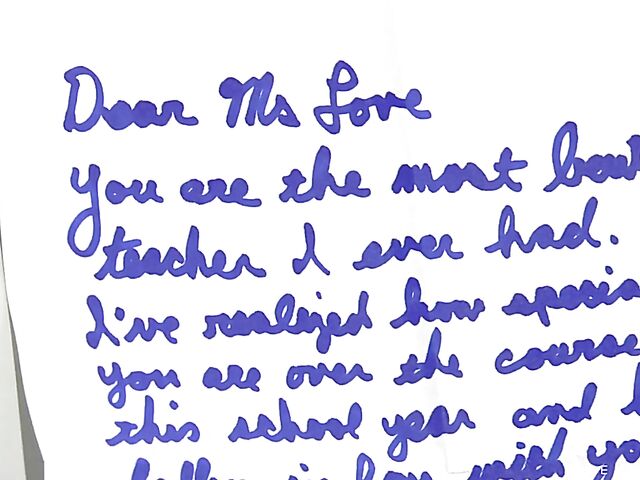 Dear Ms Love
You are the most
teacher I ever had.
I've realized how
you are over the course
this school year and
in love with